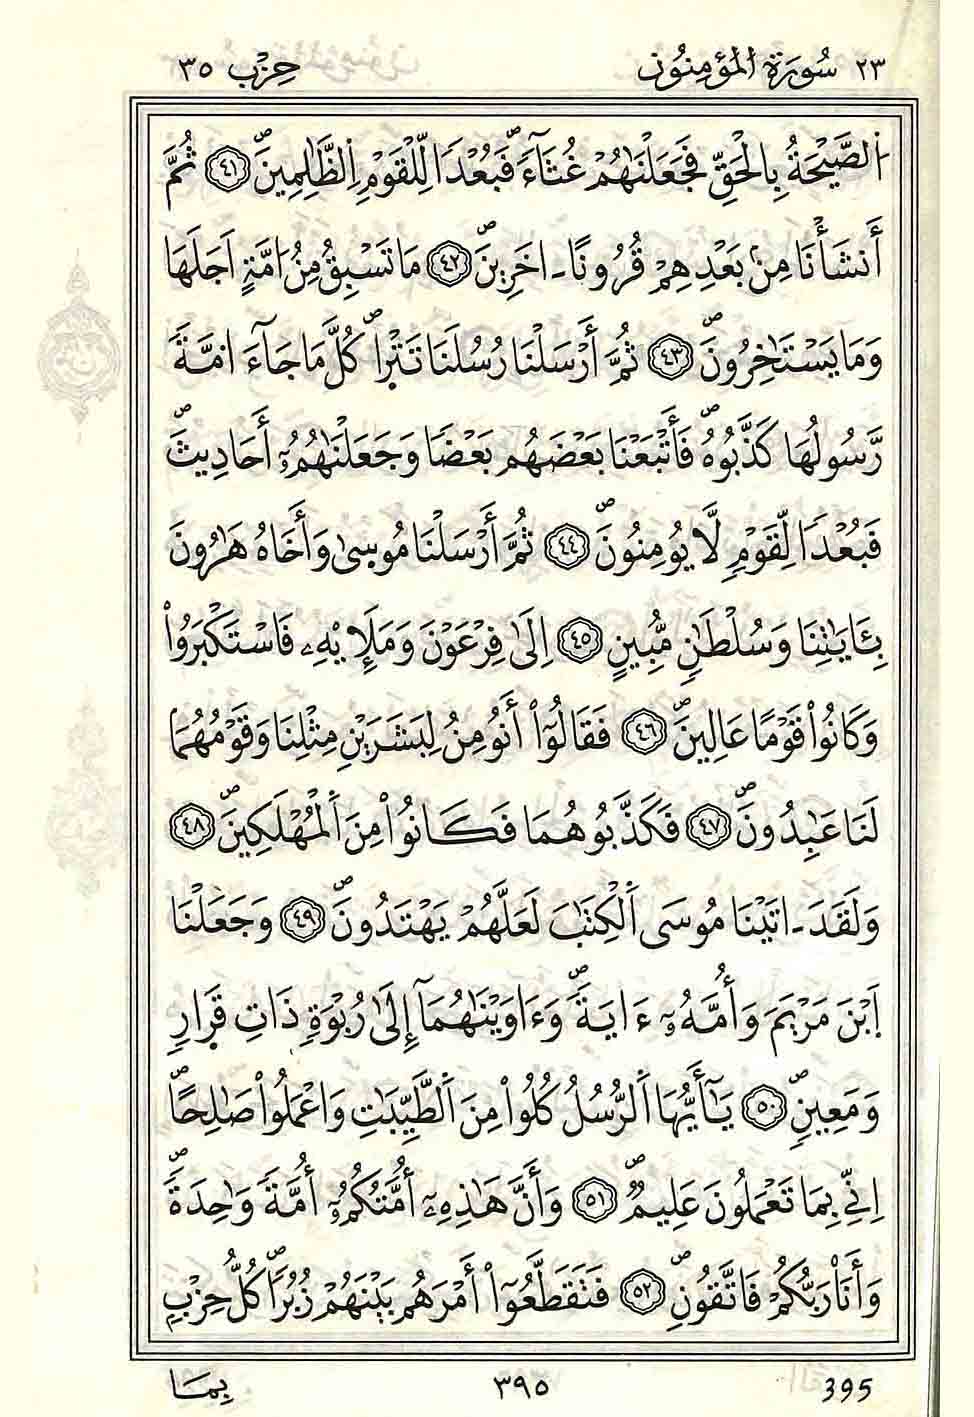 ٢٣ سُورَةُ الْمُؤْمِنُونَ حِزْب ٣٥
اَ۬لصَّيْحَةُ بِالْحَقِّ فَجَعَلْنَٰهُمْ غُثَآءٗۖ فَبُعْداٗ لِّلْقَوْمِ اِ۬لظَّٰلِمِينَۖ ٤١ ثُمَّ
أَنشَأْنَا مِنۢ بَعْدِهِمْ قُرُوناً ـ اخَرِينَۖ ٤٢ مَا تَسْبِقُ مِنُ امَّةٍ اَجَلَهَا
وَمَا يَسْتَٰخِرُونَۖ ٤٣ ثُمَّ أَرْسَلْنَا رُسُلَنَا تَتْر۪اۖ كُلَّ مَا جَآءَ امَّةٗ
رَّسُولُهَا كَذَّبُوهُۖ فَأَتْبَعْنَا بَعْضَهُم بَعْضاٗ وَجَعَلْنَٰهُمُۥٓ أَحَادِيثَۖ
فَبُعْداٗ لِّقَوْمٖ لَّا يُومِنُونَۖ ٤٤ ثُمَّ أَرْسَلْنَا مُوس۪ىٰ وَأَخَاهُ هَٰرُونَ
بِـَٔايَٰتِنَا وَسُلْطَٰنٖ مُّبِينٍ ٤٥ اِلَىٰ فِرْعَوْنَ وَمَلَإِيْهِۦ فَاسْتَكْبَرُواْ
وَكَانُواْ قَوْماً عَالِينَۖ ٤٦ فَقَالُوٓاْ أَنُومِنُ لِبَشَرَيْنِ مِثْلِنَا وَقَوْمُهُمَا
لَنَا عَٰبِدُونَۖ ٤٧ فَكَذَّبُوهُمَا فَكَانُواْ مِنَ اَ۬لْمُهْلَكِينَۖ ٤٨
وَلَقَدَ ـ اتَيْنَا مُوسَى اَ۬لْكِتَٰبَ لَعَلَّهُمْ يَهْتَدُونَۖ ٤٩ وَجَعَلْنَا
اَ۪بْنَ مَرْيَمَ وَأُمَّهُۥٓ ءَايَةٗۖ وَءَاوَيْنَٰهُمَآ إِلَىٰ رُبْوَةٖ ذَاتِ قَر۪ارٖ
وَمَعِينٖۖ ٥٠ يَٰٓأَيُّهَا اَ۬لرُّسُلُ كُلُواْ مِنَ اَ۬لطَّيِّبَٰتِ وَاعْمَلُواْ صَٰلِحاًۖ
اِنِّي بِمَا تَعْمَلُونَ عَلِيمٞۖ ٥١ وَأَنَّ هَٰذِهِۦٓ أُمَّتُكُمُۥٓ أُمَّةٗ وَٰحِدَةٗۖ
وَأَنَا۠ رَبُّكُمْ فَاتَّقُونِۖ ٥٢ فَتَقَطَّعُوٓاْ أَمْرَهُم بَيْنَهُمْ زُبُراٗۖ كُلُّ حِزْبِۢ
بِمَا ٣٩٥ 395